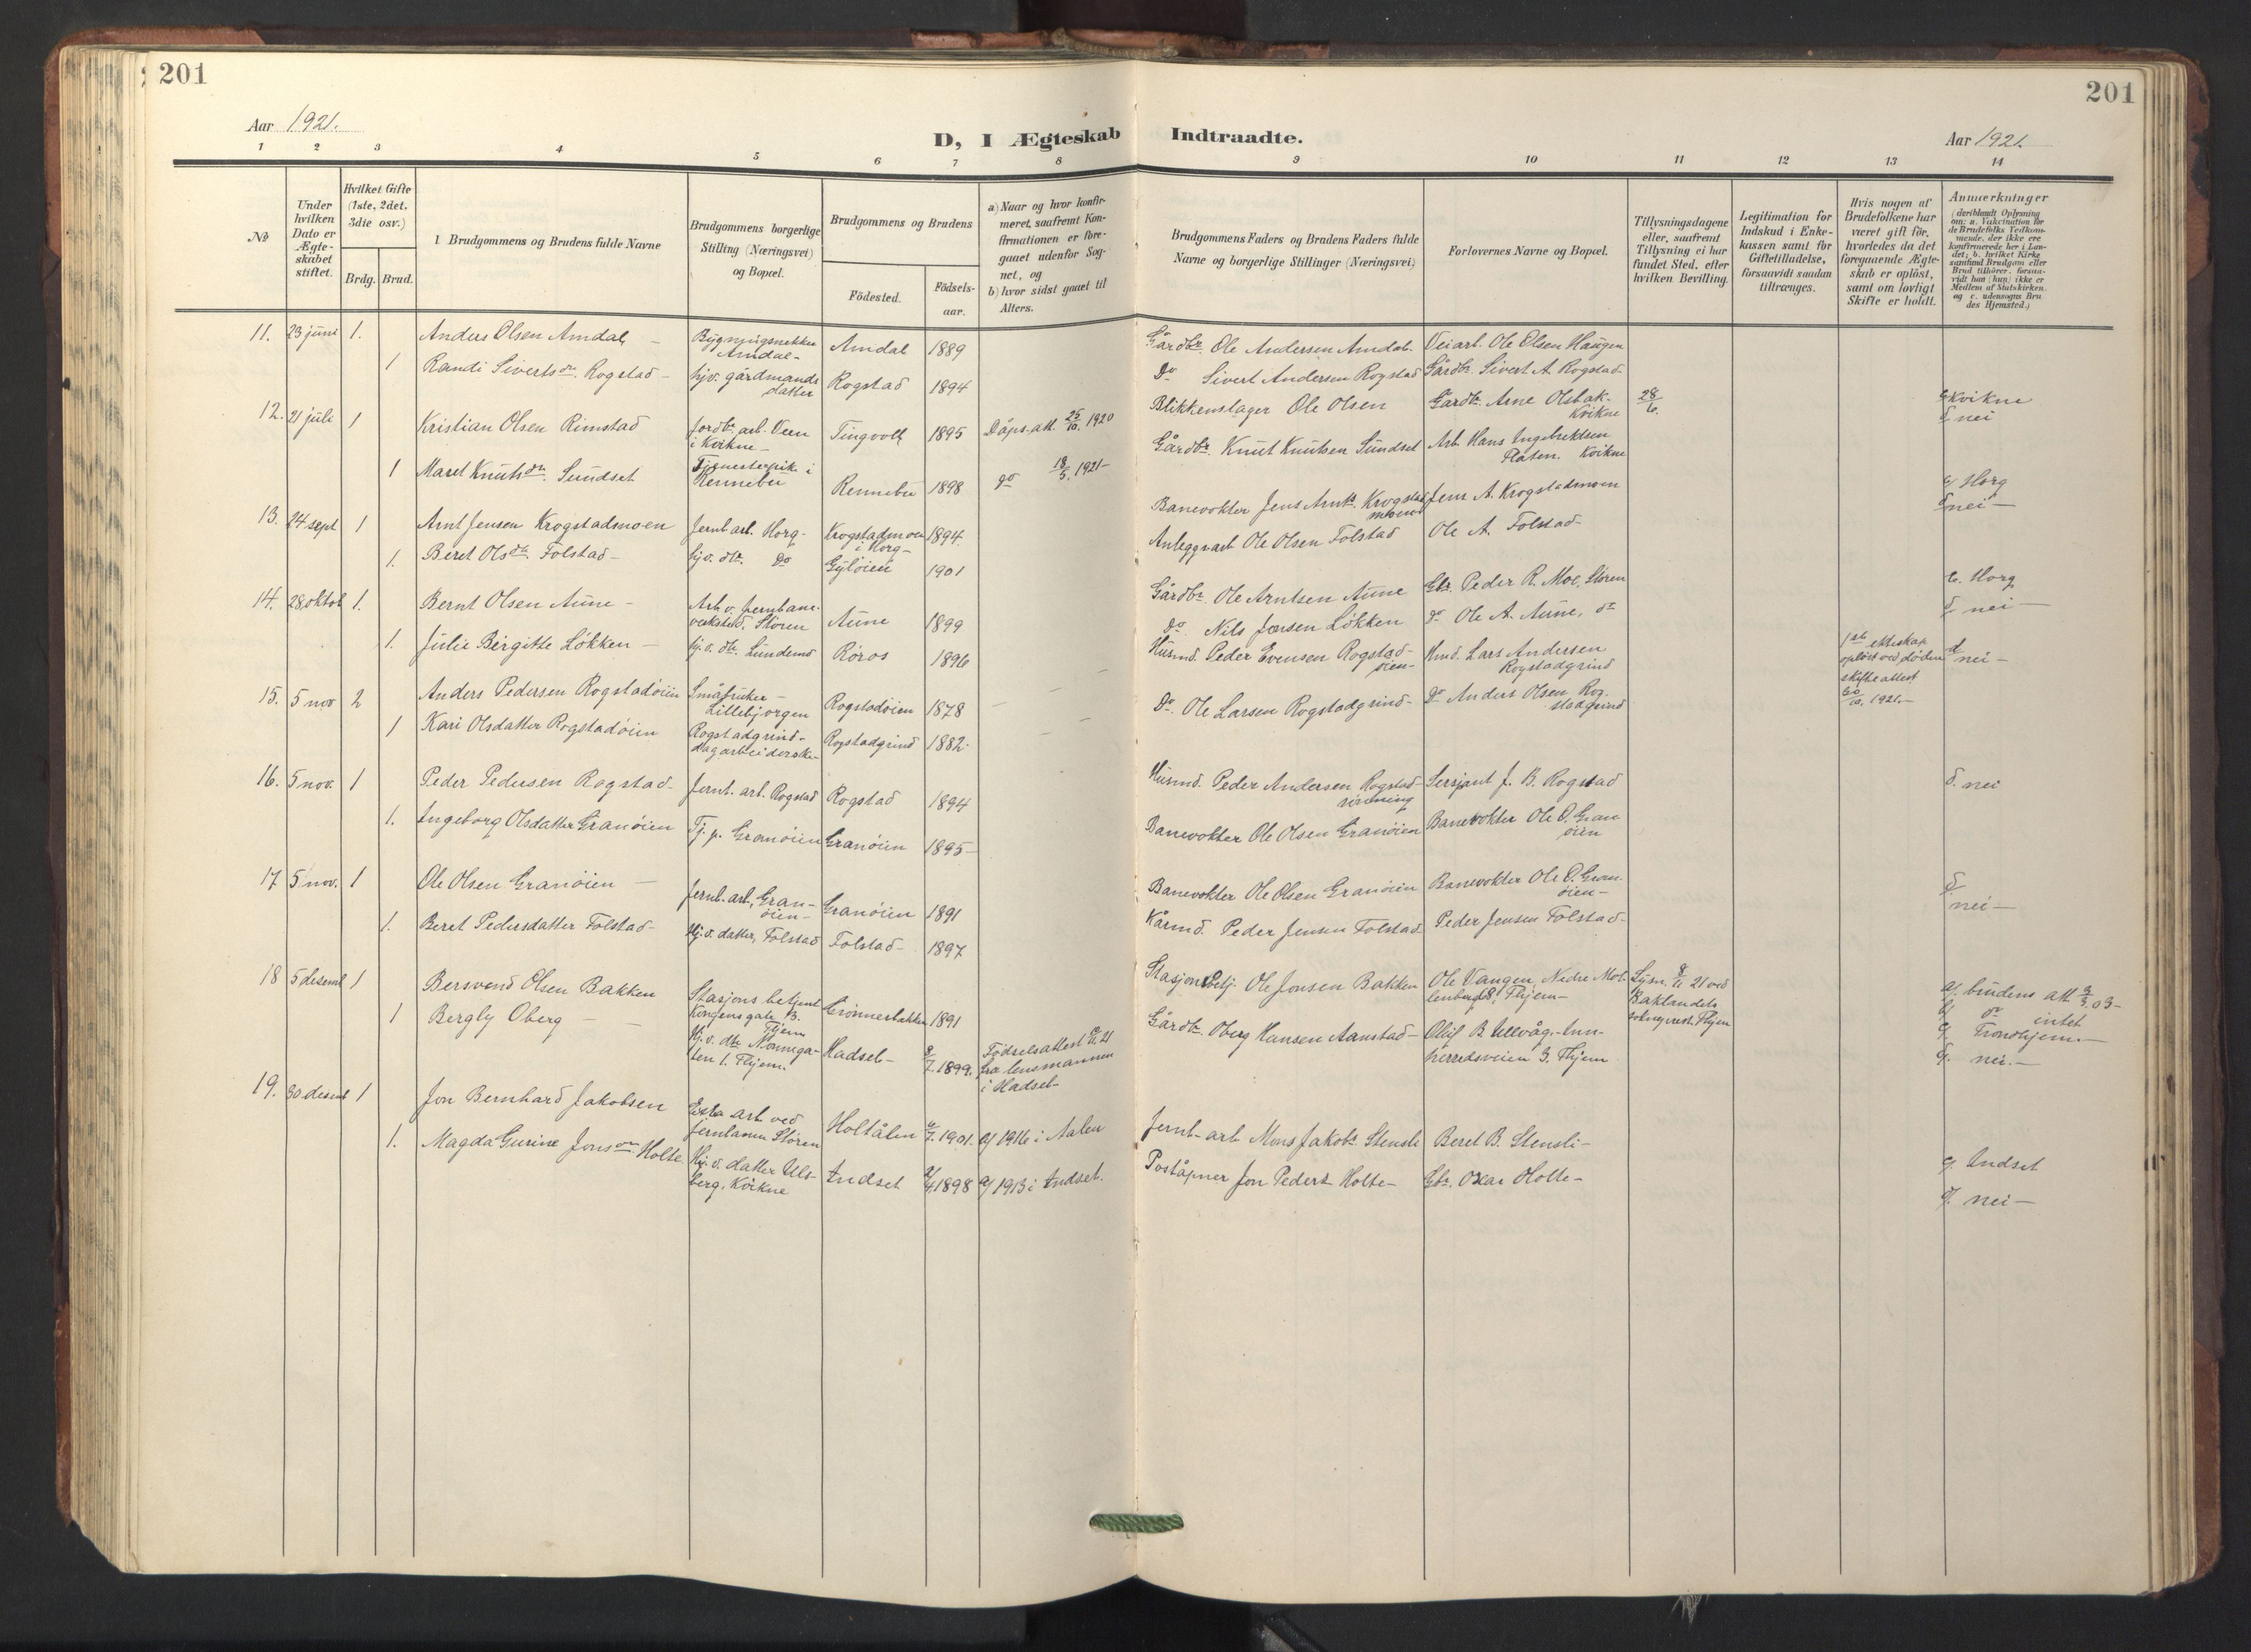 201
201
Aar 1921.
D, I Ægteskab Indtraadte.
Aar 1921.
1 2 3 4 5 6 7 8 9 10 11 12 13 14
No
Under hvilken Dato er Ægteskabet stiftet.
Hvilket Gifte (1ste, 2det, 3die osv.)
Brdg. Brud.
1. Brudgommens og Brudens fulde Navne
Brudgommens borgerlige Stilling (Næringsvei) og Bopæl.
Brudgommens og Brudens
Födested.
Födselsaar.
a) Naar og hvor konfirmeret, saafremt Konfirmationen er foregaaet udenfor Sognet, og
b) hvor sidst gaaet til Alters.
Brudgommens Faders og Brudens Faders fulde Navne og borgerlige Stillinger (Næringsvei)
Forlovernes Navne og Bopæl.
Tillysningsdagene eller, saafremt Tillysning ei har fundet Sted, efter hvilken Bevilling.
Legitimation for Indskud i Enkekassen samt for Giftetilladelse, forsaavidt saadan tiltrænges.
Hvis nogen af Brudefolkene har været gift før, hvorledes da det foregaaende Ægteskab er oplöst, samt om lovligt Skifte er holdt.
Anmærkninger
(deriblandt Oplysning om: a. Vakcination for de Brudefolks Vedkommende, der ikke ere konfirmerede her i Landet; b. hvilket Kirkesamfund Brudgom eller Brud tilhörer, forsaavidt han (hun) ikke er Medlem af Statskirken, og c. udensogns Brudes Hjemsted.)
11. 23 juni 1. Anders Olsen Amdal Bygningssnekker Amdal- Amdal 1889 Gårdbr. Ole Andersen Amdal. Veiarb. Ole Olsen Haugen
1 Randi Sivertsdtr. Rogstad- hjv. gårdmands datter Rogstad 1894 Do Sivert Andersen Rogstad Gårdbr. Sivert A. Rogstad-
12. 21 juli 1 Kristian Olsen Rimstad Jordbr. arb. Veen i Kvikne- Tingvoll 1895 Dåps.att. 25/10. 1920 Blikkenslager Ole Olsen Gårdbr. Arne Olsbak- Kvikne 28/6. c Kvikne
d nei
1 Maret Knutsdtr. Sundset Tjenestepike i Rennebu Rennebu 1898 do 18/5. 1921- Gårdbr. Knut Knutsen Sundset Arb. Hans Ingebrektsen Platen. Kvikne
13. 24 sept 1 Arnt Jensen Krogstadmoen Jernb arb. Horg- Krogstadmoen i Horg- 1894. Banevokter Jens Arnts. Krogstadmoen Jens A. Krogstadmoen c/ Horg
d nei-
1. Beret Olsdtr Folstad- hjv. dtr. Do Gyløien 1901 Anleggsarb Ole Olsen Folstad Ole A. Folstad-
14. 28 oktob 1. Bernt Olsen Aune- Arb v. Jernbaneverksted. Støren Aune 1899 Gårdbr. Ole Arntsen Aune Gbr. Peder R. Moe, Støren c. Horg
d nei-
1. Julie Birgitte Løkken- hj.v. dtr. Lundemo Røros 1896 do Nils Jensen Løkken do Ole A. Aune, do
15. 5 nov 2 Anders Pedersen Rogstadøien Småbruker- Lillebjorgen Rogstadøien 1878 Husmd. Peder Evensen Rogstadøien- Hmd. Lars Andersen Rogstadgrind 1ste ekteskap opløst ved døden skifteattest /10. 1921.- d nei-
1 Kari Olsdatter Rogstadøien Rogstadgrind- dagarbeiderske- Rogstadgrind 1882. Do. Ole Larsen Rogstadgrind- Do Anders Olsen Rogstadgrind
16. 5 nov. 1 Peder Pedersen Rogstad- Jernb. arb. Rogstad Rogstad 1894 Husmd. Peder Andersen Rogstad Sersjant J. B. Rogstad d. nei
1. Ingeborg Olsdatter Granøien Tj. p. Granøien Granøien 1895- Banevokter Ole Olsen Granøien Banevokter Ole O. Granøien
17 5 nov. 1 Ole Olsen Granøien- Jernb. arb. Granøien- Granøien 1891 Banevokter Ole Olsen Granøien Banevokter Ole O. Granøien- d. nei-
1. Beret Pedersdatter Folstad- Hj.v. datter, Folstad Folstad- 1897 Kårmd. Peder Jensen Folstad- Peder Jensen Folstad-
18 5 desemb 1 Bersvend Olsen Bakken Stasjonsbetjent Kongens gate B. Thjem Grønnesbakken 1891 Stasjonsbetj. Ole Jonsen Bakken Ole Vangen, Nedre Møllenberg 8, Thjem- Lysn. 8/11 21 ved Baklandets sokneprest. Thjem a/. brudens att 3/3 03-
b/ do intet
c/ Trondhjem.-
d. nei.-
1 Bergly Oberg- Hj.v. dtr Nonnegaten 1. Thjem. Hadsel- 8/7. 1899. Fødselsattest 21 fra lensmannen i Hadsel- Gårdbr. Oberg Hansen Aanstad- Oluf B. Ulvåg.- Innherredsveien 3. Thjem
19. 30 desemb 1 Jon Bernhard Jakobsen Extra arb ved jernbanen Støren Holtålen /7. 1901. a/ 1916 i Aalen Jernb- arb Mons Jakobs. Stensli Beret B. Stensli- c/. Indset
d/. nei-
1. Magda Gurine Jonsdtr Holte Hj.v. datter Ulsberg. Kvikne Indset 2/4. 1898 a/ 1913 i Indset. Poståpner Jon Peders. Holte- Gbr. Oxar Holte-